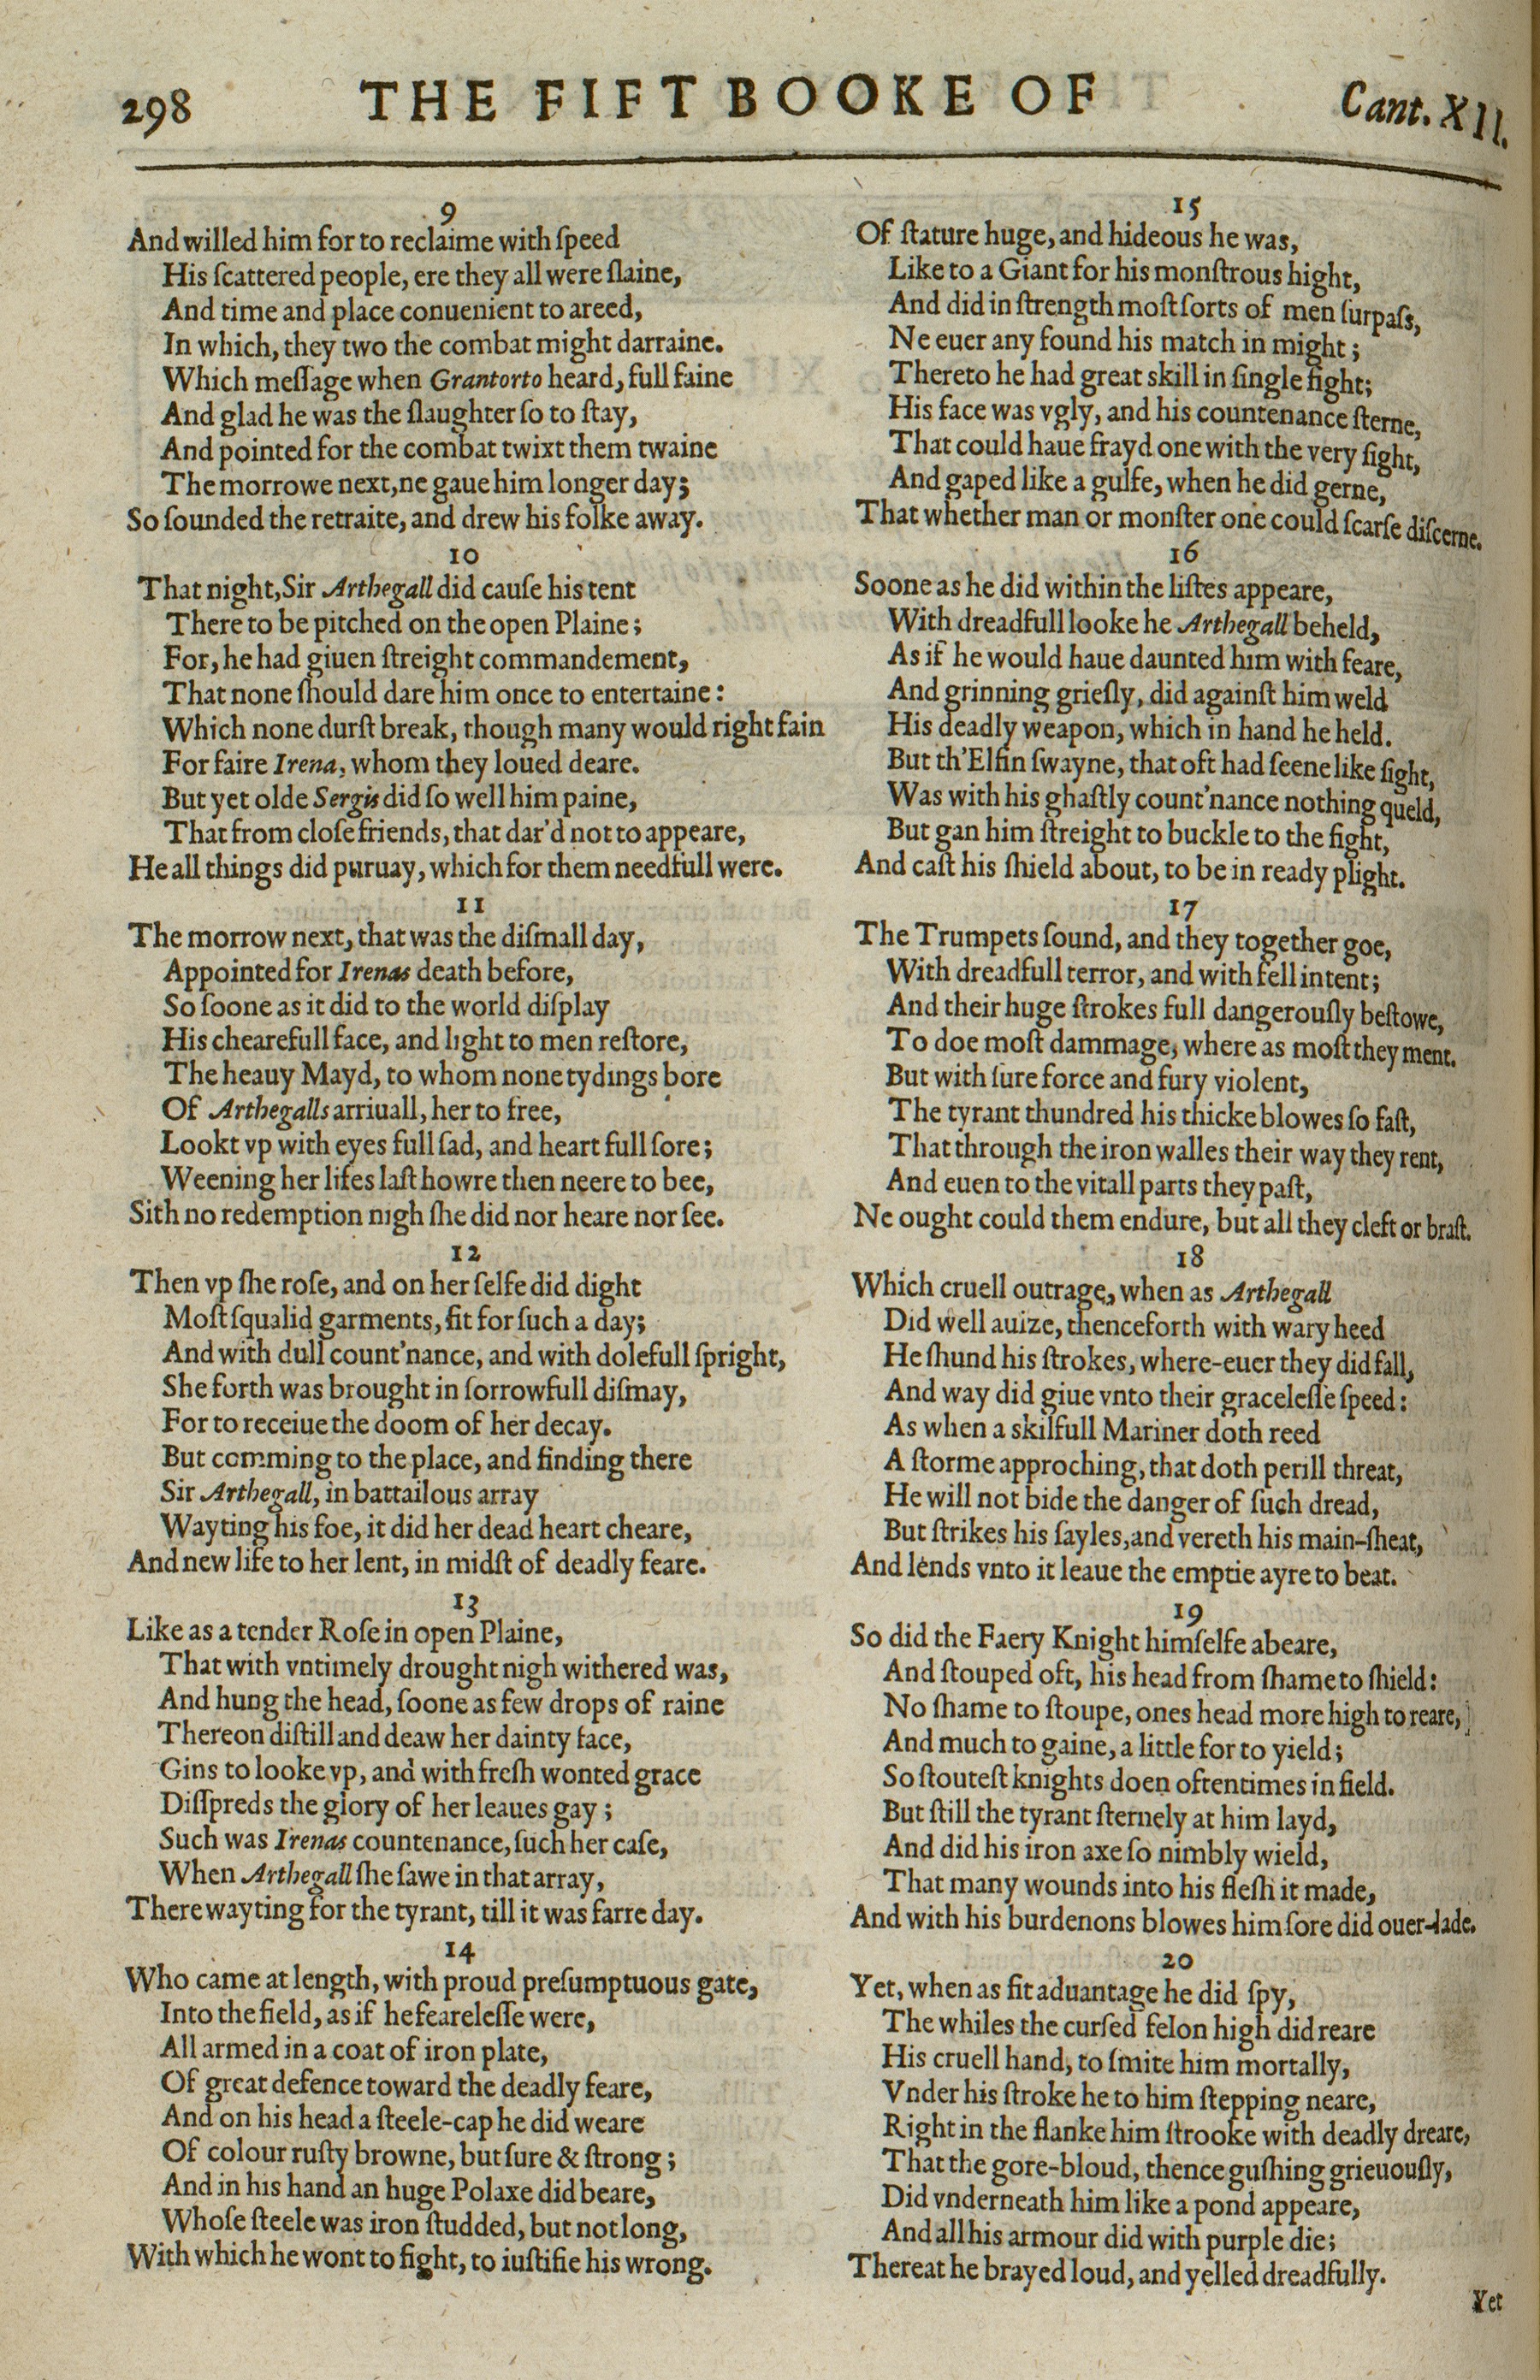 298 THE FIFT BOOKE OF Cant. XII.
9
And willed him for to reclaime with ſpeed
His ſcattered people, ere they all were ſlaine,
And time and place conuenient to areed,
In which, they two the combat might darraine.
Which meſſage when Grantorto heard, full faine
And glad he was the ſlaughter ſo to ſtay,
And pointed for the combat twixt them twaine
The morrowe next, ne gaue him longer day;
So ſounded the retraite, and drew his folke away.
10
That night, Sir Arthegall did cauſe his tent
There to be pitched on the open Plaine;
For, he had giuen ſtreight commandement,
That none ſhould dare him once to entertaine:
Which none durſt break, though many would right fain
For faire Irena, whom they loued deare.
But yet olde Sergis did ſo well him paine,
That from cloſe friends, that dar'd not to appeare,
He all things did puruay, which for them needfull were.
11
The morrow next, that was the diſmall day,
Appointed for Irenas death before,
So ſoone as it did to the world diſplay
His chearefull face, and light to men reſtore,
The heauy Mayd, to whom none tydings bore
Of Arthegalls arriuall, her to free,
Lookt vp with eyes full ſad, and heart full ſore;
Weening her lifes laſt howre then neere to bee,
Sith no redemption nigh ſhe did nor heare nor ſee.
12
Then vp ſhe roſe, and on her ſelfe did dight
Moſt ſqualid garments, fit for ſuch a day;
And with dull count'nance, and with dolefull ſpright,
She forth was brought in ſorrowfull diſmay,
For to receiue the doom of her decay.
But comming to the place, and finding there
Sir Arthegall, in battailous array
Wayting his foe, it did her dead heart cheare,
And new life to her lent, in midſt of deadly feare.
13
Like as a tender Roſe in open Plaine,
That with vntimely drought nigh withered was,
And hung the head, ſoone as few drops of raine
Thereon diſtill and deaw her dainty face,
Gins to looke vp, and with freſh wonted grace
Diſſpreds the glory of her leaues gay;
Such was Irenas countenance, ſuch her caſe,
When Arthegall ſhe ſawe in that array,
There wayting for the tyrant, till it was farre day.
14
Who came at length, with proud preſumptuous gate,
Into the field, as if he feareleſſe were,
All armed in a coat of iron plate,
Of great defence toward the deadly feare,
And on his head a ſteele-cap he did weare
Of colour ruſty browne, but ſure & ſtrong;
And in his hand an huge Polaxe did beare,
Whoſe ſteele was iron ſtudded, but not long,
With which he wont to fight, to iuſtifie his wrong.
15
Of ſtature huge, and hideous he was,
Like to a Giant for his monſtrous hight,
And did in ſtrength moſt ſorts of men ſurpaſs,
Ne euer any found his match in might;
Thereto he had great skill in ſingle fight;
His face was vgly, and his countenance ſterne,
That could haue frayd one with the very ſight,
And gaped like a gulfe, when he did gerne,
That whether man or monſter one could ſcarſe diſcerne.
16
Soone as he did within the liſtes appeare,
With dreadfull looke he Arthegall beheld,
As if he would haue daunted him with feare,
And grinning grieſly, did againſt him weld
His deadly weapon, which in hand he held.
But th'Elfin ſwayne, that oft had ſeene like ſight,
Was with his ghaſtly count'nance nothing queld,
But gan him ſtreight to buckle to the fight,
And caſt his ſhield about, to be in ready plight.
17
The Trumpets ſound, and they together goe,
With dreadfull terror, and with fell intent;
And their huge ſtrokes full dangerouſly beſtowe,
To doe moſt dammage, where as moſt they ment.
But with ſure force and fury violent,
The tyrant thundred his thicke blowes ſo faſt,
That through the iron walles their way they rent,
And euen to the vitall parts they paſt,
Ne ought could them endure, but all they cleft or braſt.
18
Which cruell outrage, when as Arthegall
Did well auize, thenceforth with wary heed
He ſhund his ſtrokes, where-euer they did fall,
And way did giue vnto their graceleſſe ſpeed:
As when a skilfull Mariner doth reed
A ſtorme approching, that doth perill threat,
He will not bide the danger of ſuch dread,
But ſtrikes his ſayles, and vereth his main-ſheat,
And lends vnto it leaue the emptie ayre to beat.
19
So did the Faery Knight himſelfe abeare,
And ſtouped oft, his head from ſhame to ſhield:
No ſhame to ſtoupe, ones head more high to reare,
And much to gaine, a little for to yield;
So ſtouteſt knights doen oftentimes in field.
But ſtill the tyrant ſternely at him layd,
And did his iron axe ſo nimbly wield,
That many wounds into his fleſh it made,
And with his burdenons blowes him ſore did ouer-lade.
20
Yet, when as fit aduantage he did ſpy,
The whiles the curſed felon high did reare
His cruell hand, to ſmite him mortally,
Vnder his ſtroke he to him ſtepping neare,
Right in the flanke him ſtrooke with deadly dreare,
That the gore-bloud, thence guſhing grieuouſly,
Did vnderneath him like a pond appeare,
And all his armour did with purple die;
Thereat he brayed loud, and yelled dreadfully.
Yet